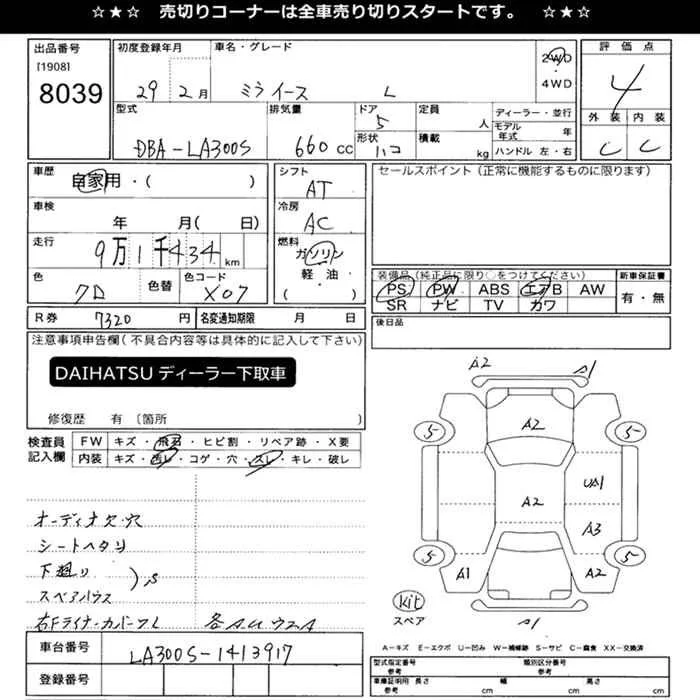 ☆★☆ 売切りコーナーは全車売り切りスタートです。 ☆★☆
出品番号
[1908]
8039
初度登録年月
29年2月
車名・グレード
ミライース L
2WD
4WD
評価点
4
外装 内装
C C
型式
DBA-LA300S
排気量
660cc
ドア
5
形状
ハコ
定員
人
積載
kg
ディーラー・並行
モデル年式 年
ハンドル 左・右
車歴
自家用・( )
シフト
AT
セールスポイント(正常に機能するものに限ります)
車検
年 月( 日)
冷房
AC
走行
9万1千434km
燃料
ガソリン
軽・油・
( )
色
クロ
色替
色コード
X07
装備品(純正品に限り○をつけてください)
PS PW ABS エアB AW
SR ナビ TV カワ
新車保証書
有・無
R券 7320円
名変通知期限 月 日
後日品
注意事項申告欄(不具合内容等は具体的に記入して下さい)
DAIHATSU ディーラー下取車
修復歴 有〔箇所 〕
検査員記入欄
FW キズ・飛石・ヒビ割・リペア跡・X要
内装 キズ・汚レ・コゲ・穴・スレ・キレ・破レ
オーディオ欠・穴
シートヘタリ
下廻り
スペアハウス
)S
右Fライナーカバーワレ
各AUウスA
A2 A1
5 A2 5
UA1
A2
A3
5 5
A1 A2
kit
スペア
A1
A-キズ E-エクボ U-凹み W-補修跡 S-サビ C-腐食 XX-交換済
車台番号
LA300S-1413917
登録番号
型式指定番号
参考
類別区分番号
参考
車庫証明用 長さ
参考 cm
幅
cm
高さ
cm